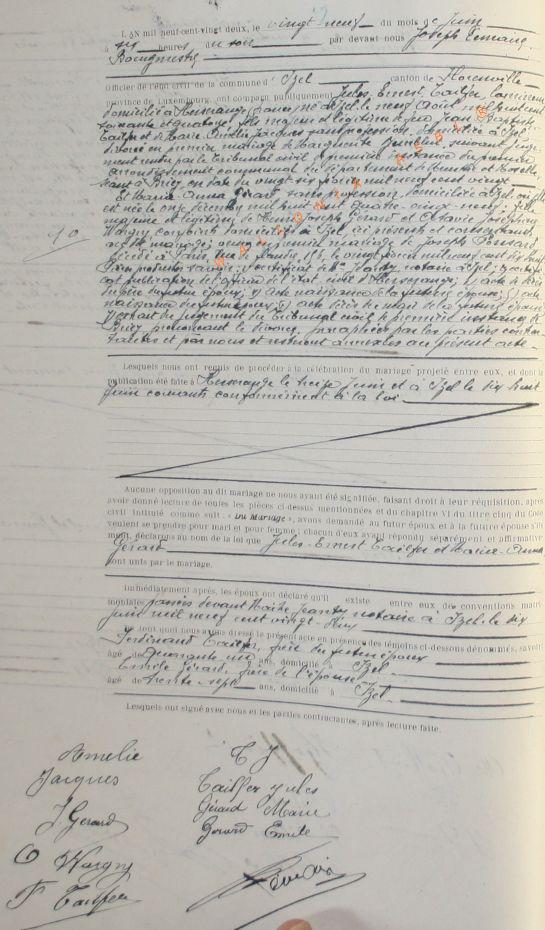 L'AN mil neuf cent vingt deux, le vingt neuf du mois de Juin
à six heures du soir par devant nous Joseph Lemaire,
Bourgmestre
Officier de l'état civil de la commune d'Izel canton de Florenville
province de Luxembourg, ont comparu publiquement Jules, Ernest, Tailfer,
domicilié à Herserange, né à Izel le neuf Août mil huit cent
majeur et légitime de feu Jean Baptiste
Tailfer et de Marie Amélie Jacques sans profession, domiciliée à Izel
divorcé en premier mariage de Marguerite suivant juge-
ment rendu par le tribunal civil de première instance du premier
arrondissement communal du département de Meurthe et Moselle
séant à Briey en date du vingt six mil neuf cent vingt
Et Maria Anna Gérard sans profession, domiciliée à Izel, où elle
est née le onze décembre mil huit cent quatre-vingt-neuf, fille
majeure et légitime de Henri Joseph Gérard et Octavie Joséphine
Wargny conjoints domiciliés à Izel, ici présents et consentants
veuve en premier mariage de Joseph
décédé à Paris,
notaire à Izel;
de publication de l'officier de l'état civil d'Herserange;
du père du futur époux; acte naissance de la future épouse;
naissance du futur époux; acte décès du mari de la future épouse
du jugement du Tribunal civil de première instance de
Briey prononçant le divorce, paraphées par les parties contrac-
tantes et par nous et resteront annexées au présent acte
10
WALLONIA ASBL
Lesquels nous ont requis de procéder à la célébration du mariage projeté entre eux, et dont la
publication été faite à Herserange le treize Juin et à Izel le dix huit
Juin courants conformément à la loi
Aucune opposition au dit mariage ne nous ayant été signifiée, faisant droit à leur réquisition, après
avoir donné lecture de toutes les pièces ci-dessus mentionnées et du chapitre VI du titre cinq du Code
civil intitulé comme suit: « DU MARIAGE », avons demandé au futur époux et à la future épouse s'ils
veulent se prendre pour mari et pour femme; chacun d'eux ayant répondu séparément et affirmative-
ment, déclarons au nom de la loi que Jules-Ernest Tailfer et Marie-Anna
Gérard
sont unis par le mariage.
Immédiatement après, les époux ont déclaré qu'il existe entre eux des conventions matri-
moniales passées devant Maître Jeanty notaire à Izel le six
Juin mil neuf cent vingt-deux
De tout quoi nous avons dressé le présent acte en présence des témoins ci-dessous dénommés, savoir:
Ferdinand Tailfer, frère du futur époux
âgé de quarante un ans, domicilié à Izel
Emile Gérard, frère de l'épouse
âgé de trente-sept ans, domicilié à Izel
Lesquels ont signé avec nous et les parties contractantes, après lecture faite.
Amelie T J
Jacques Tailfer Jules
J Gerard Gérard Marie
Gerard Emile
O Wargny
F Tailfer Lemaire